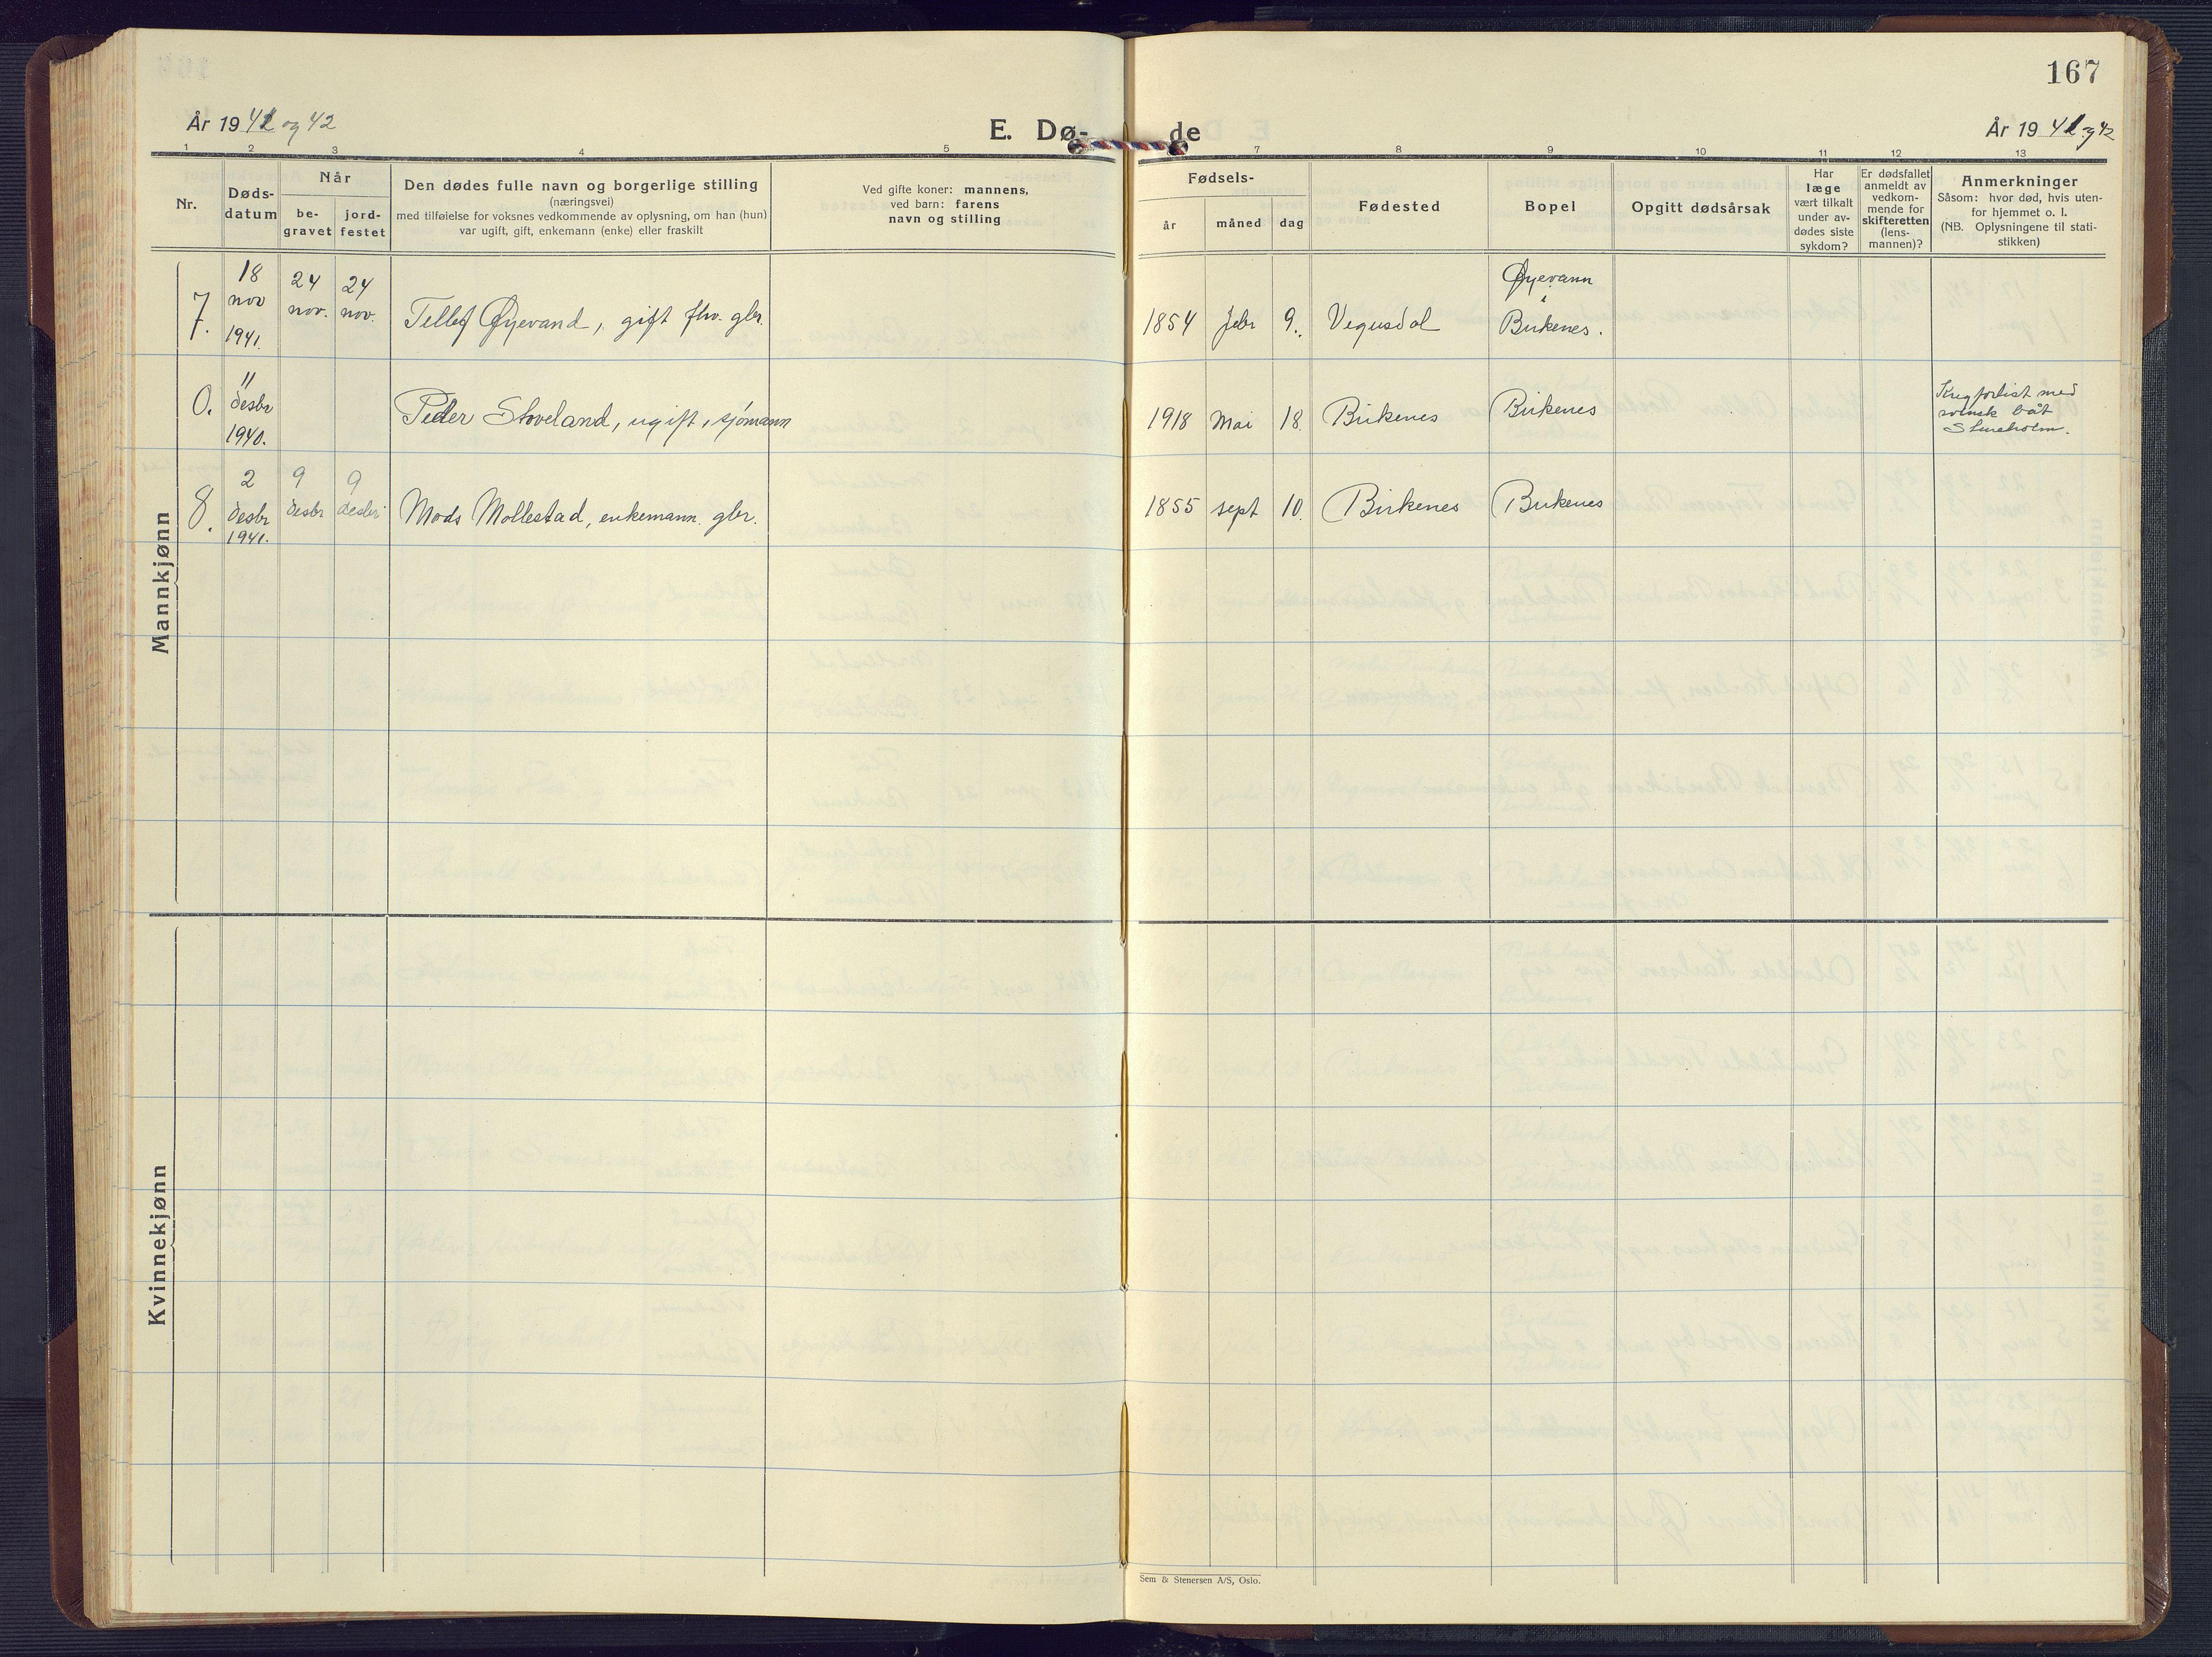 167
År 1941 og 42
E. Dø-
de
År 1941 og 42
1 2 3 4 5 7 8 9 10 11 12 13
Nr.
Døds-
datum
Når
be-
gravet
jord-
festet
Den dødes fulle navn og borgerlige stilling
(næringsvei)
med tilføielse for voksnes vedkommende av oplysning, om han (hun)
var ugift, gift, enkemann (enke) eller fraskilt
Ved gifte koner: mannens,
ved barn: farens
navn og stilling
Fødsels-
år
måned
dag
Fødested
Bopel
Opgitt dødsårsak
Har
læge
vært tilkalt
under av-
dødes siste
sykdom?
Er dødsfallet
anmeldt av
vedkom-
mende for
skifteretten
(lens-
mannen)?
Anmerkninger
Såsom: hvor død, hvis uten-
for hjemmet o. l.
(NB. Oplysningene til stati-
stikken)
Mannkjønn
7.
18
nov
1941.
24
nov.
24
nov.
Tellef Øyevand, gift fhv. gbr.
1854 febr 9. Vegusdal
Øyevann
Birkenes.
0.
11
desbr
1940.
Peder Stoveland, ugift, sjømann
1918 Mai 18. Birkenes Birkenes
Krigforlist med
svensk båt
Stureholm.
8.
2
desbr
1941.
9
desbr
9
desbr
Mads Mollestad, enkemann. gbr.
1855 sept 10. Birkenes Birkenes
Kvinnekjønn
Sem & Stenersen A/S, Oslo.